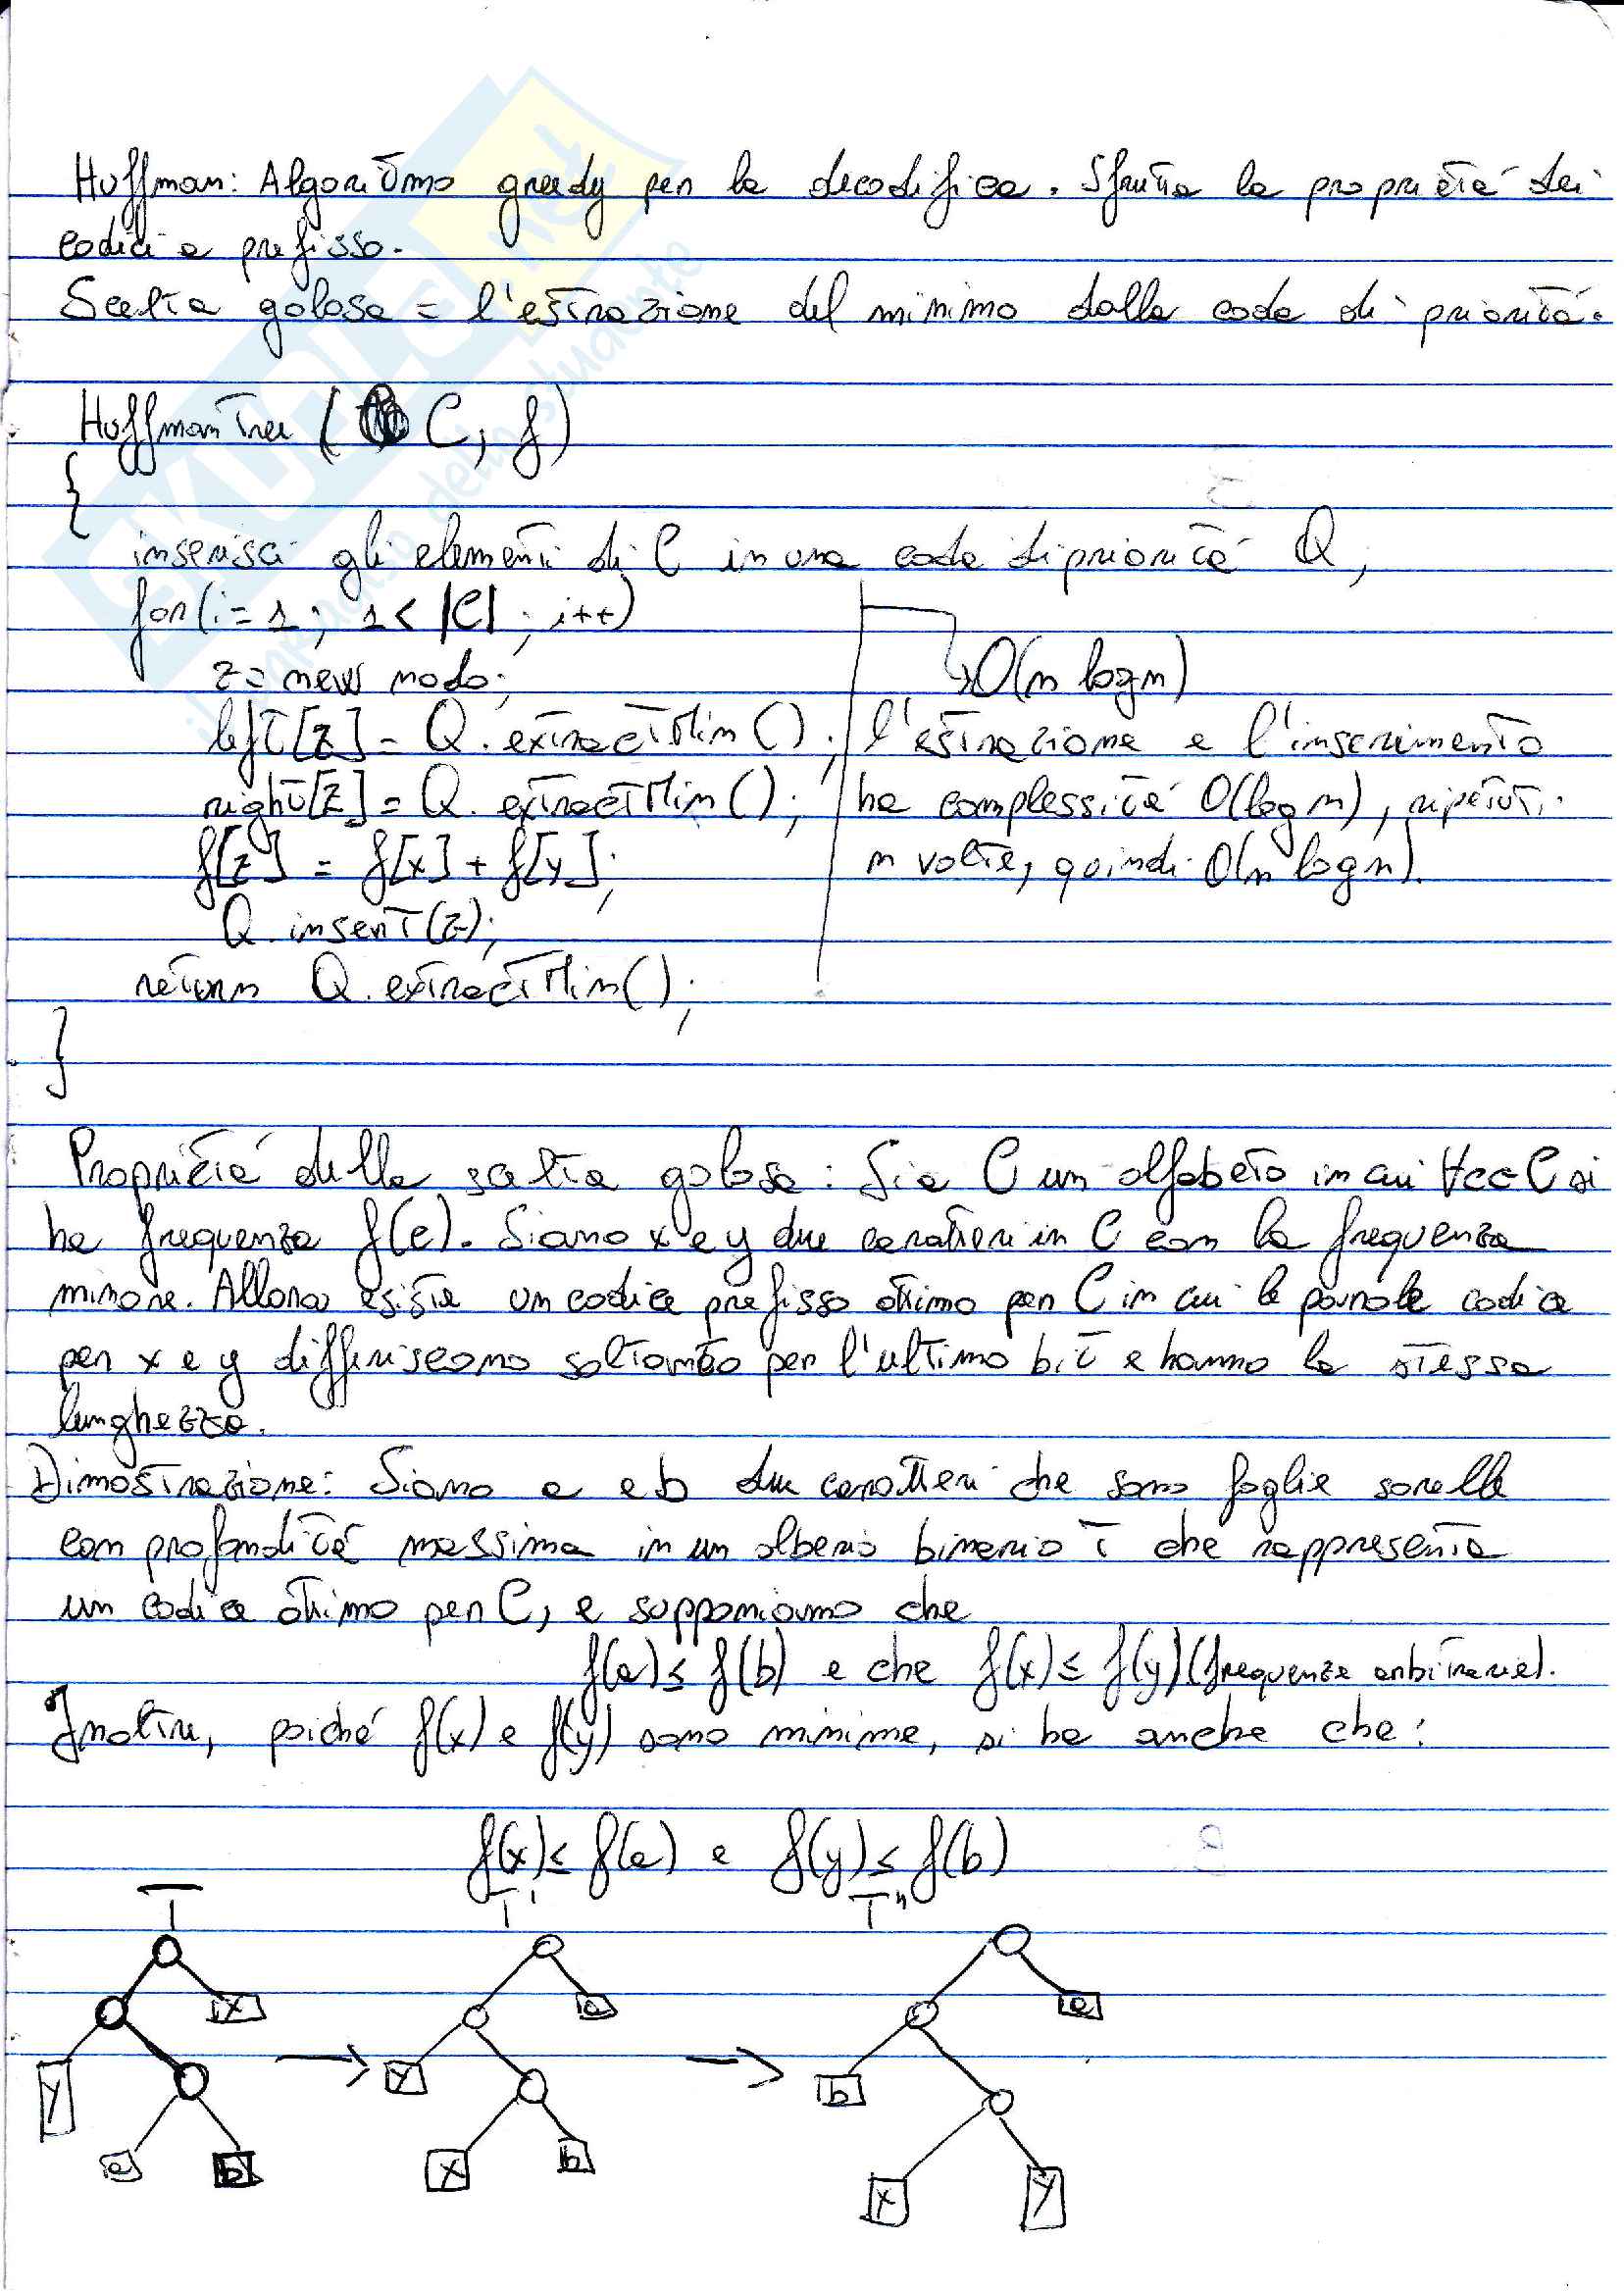 Huffman: Algoritmo greedy per la decodifica. Sfrutta la proprietá dei
codici a prefisso.
Scelta golosa = l'estrazione del minimo dalla coda di prioritá.
HuffmanTree ( C, f)
{
inserisci gli elementi di C in una coda di prioritá Q;
for(i=1; 1<|C|; i++)
z= new nodo;
O(n log n)
left[z]= Q.extractMin();
l'estrazione e l'inserimento
right[z]= Q.extractMin();
ha complessitá O(log n), ripetuti
f[z] = f[x] + f[y];
n volte, quindi O(n log n).
Q.insert(z);
return Q.extractMin();
}
Proprietá della scelta golosa: Sia C un alfabeto in cui ∀c∈C si
ha frequenza f(c). Siano x e y due caratteri in C con la frequenza
minore. Allora esiste un codice prefisso ottimo per C in cui le parole codice
per x e y differiscono soltanto per l'ultimo bit e hanno la stessa
lunghezza.
Dimostrazione: Siano a e b due caratteri che sono foglie sorelle
con profonditá massima in un albero binario T che rappresenta
un codice ottimo per C, e supponiamo che
f(a)≤ f(b) e che f(x)≤ f(y)(frequenze arbitrarie).
Inoltre, poiché f(x) e f(y) sono minime, si ha anche che:
f(x)≤ f(a) e f(y)≤ f(b)
T T' T"
x a a
y y b
x b
a b x y